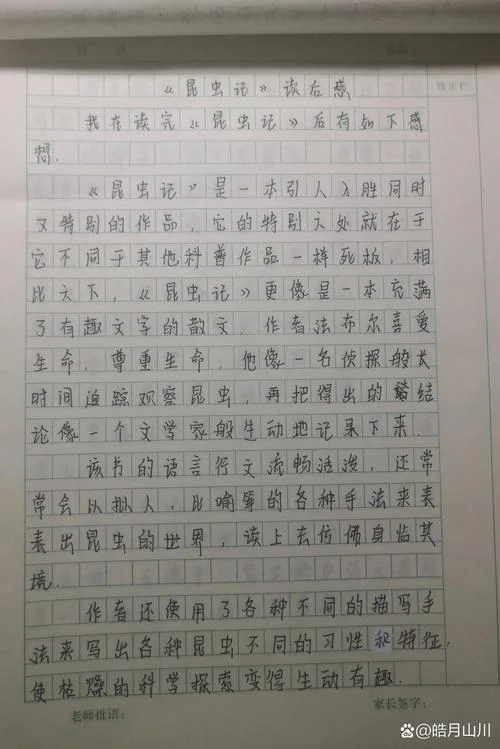 《昆虫记》读后感
我在读完《昆虫记》后有如下感
想.
《昆虫记》是一本引人入胜同时
又特别的作品，它的特别之处就在于
它不同于其他科普作品一样死板，相
比之下，《昆虫记》更像是一本充满
了有趣文字的散文.作者法布尔喜爱
生命，尊重生命，他像一名侦探般长
时间追踪观察昆虫，再把得出的结
论像一个文学家般生动地记录下来.
该书的语言行文流畅活泼，还常
常会以拟人、比喻等的各种手法来表
表出昆虫的世界，读上去仿佛身临其
境.
作者还使用了各种不同的描写手
法来写出各种昆虫不同的习性和特征，
使枯燥的科学探索变得生动有趣.
老师批语： 家长签字：
百家号 皓月山川